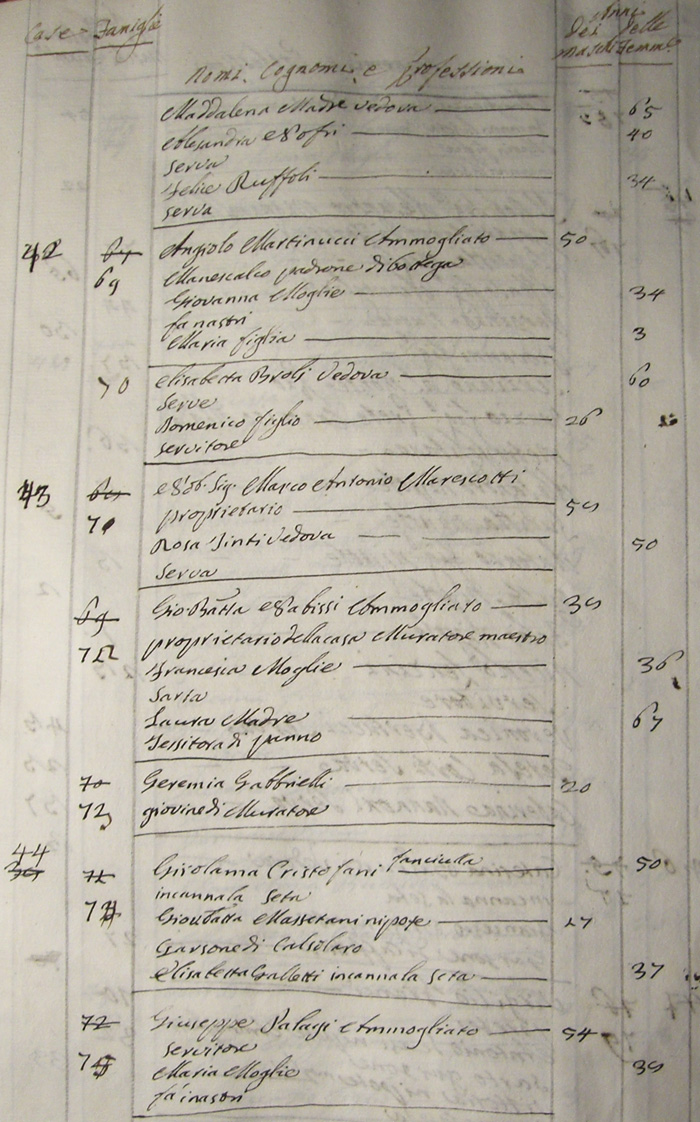 Case Famiglie Nomi, Cognomi, e professioni Anni
Dei Delle
Maschi Femmine
Maddalena Madre vedova 65
Alesandra 40
Serva
Felie Ruffoli 34
serva
42 67 Angiolo Martinucci Ammogliato 50
69 Manescalco padrone di bottega
Giovanna Moglie 34
fa nastri
Maria figlia 3
70 Elisabetta Broli Vedova 60
Serve
Domenico figlio 26
servitore
43 Sig. Marco Antonio Marescotti
71 proprietario
Rosa Tinti Vedova 50
Serva
69 Gio: Batta Ammogliato
72 proprietario della casa Muratore maestro
Francesca Moglie 36
Sarta
Laura Madre 67
Tessitora di panno
70 Geremia Gabbrielli 20
73 giovine di Muratore
44
71 Girolama Cristofani fanciulla 50
incanna la seta
74 Giou Batta Massetani nipote 17
Garsone di Calsolaro
Elisabetta Galletti incanna la seta 37
72 Giuseppe Palagi Ammogliato 54
servitore
75 Maria Moglie
fa i nastri